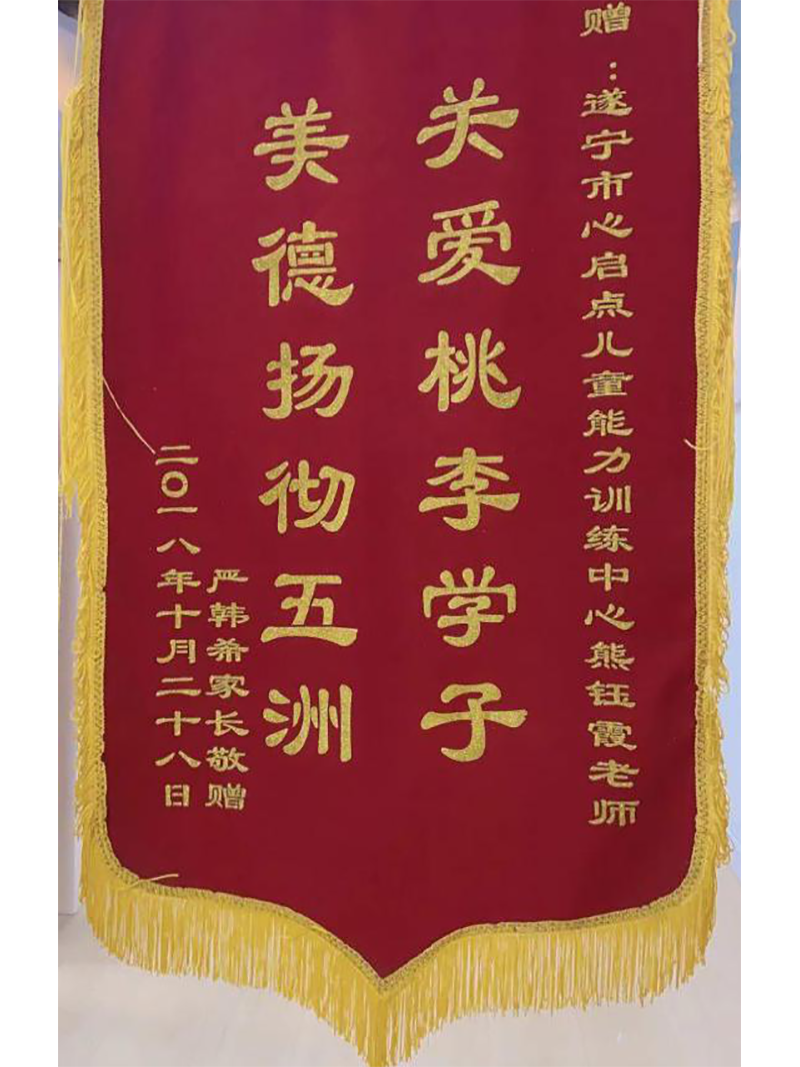 赠：遂宁市心启点儿童能力训练中心熊钰霞老师
关爱桃李学子
美德扬彻五洲
严韩希家长敬赠
二〇一八年十月二十八日